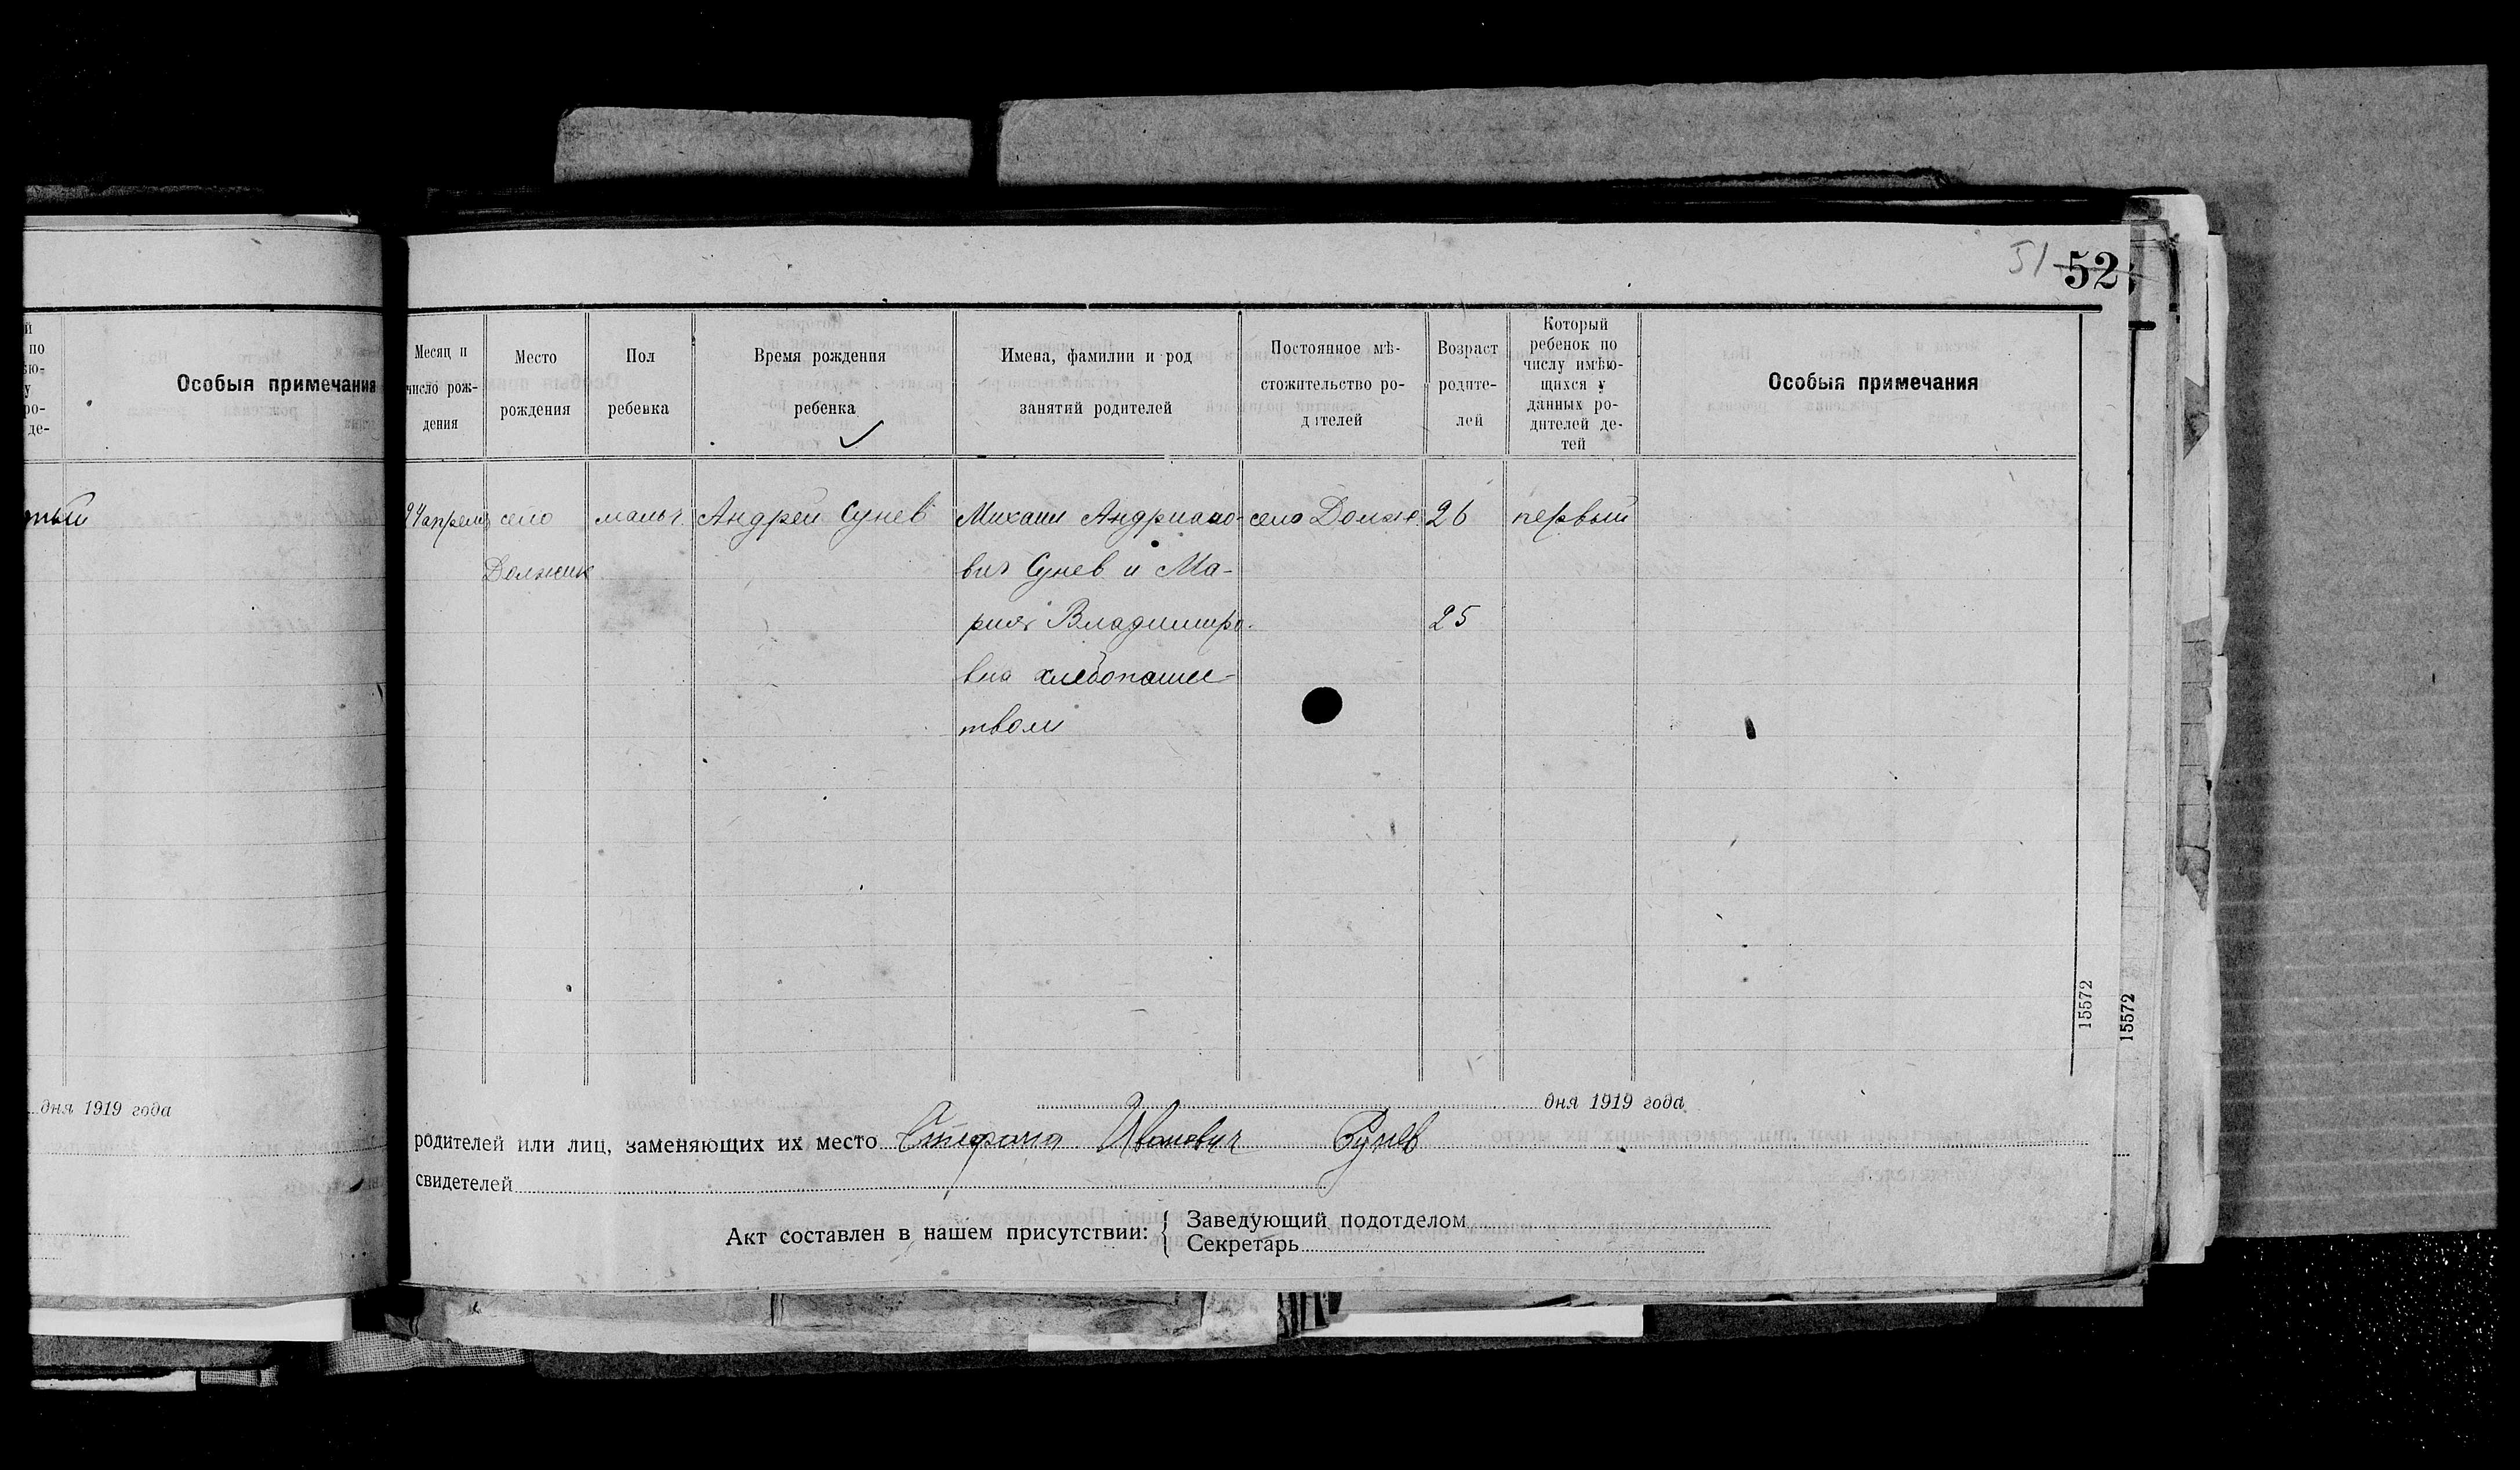 й
по
ю-
у
ро-
де-
Особыя примечания
тый
дня 1919 года
51 52
Месяц и
число рож-
дения
Место
рождения
Пол
ребенка
Время рождения
ребенка
Имена, фамилии и род
занятий родителей
Постоянное мѣ-
стожительство ро-
дителей
Возраст
родите-
лей
Который
ребенок по
числу имѣю-
щихся у
данных ро-
дителей де-
тей
Особыя примечания
24 апреля село мальч. Андрей Сунев Михаил Андриано- село Долж 26 первый
Должик вич Сунев и Ма-
рия Владимиро- 25
вна хлебопашес-
твом
15572
15572
дня 1919 года
родителей или лиц, заменяющих их место Иванович Сунев
свидетелей
Акт составлен в нашем присутствии: { Заведующий подотделом
Секретарь